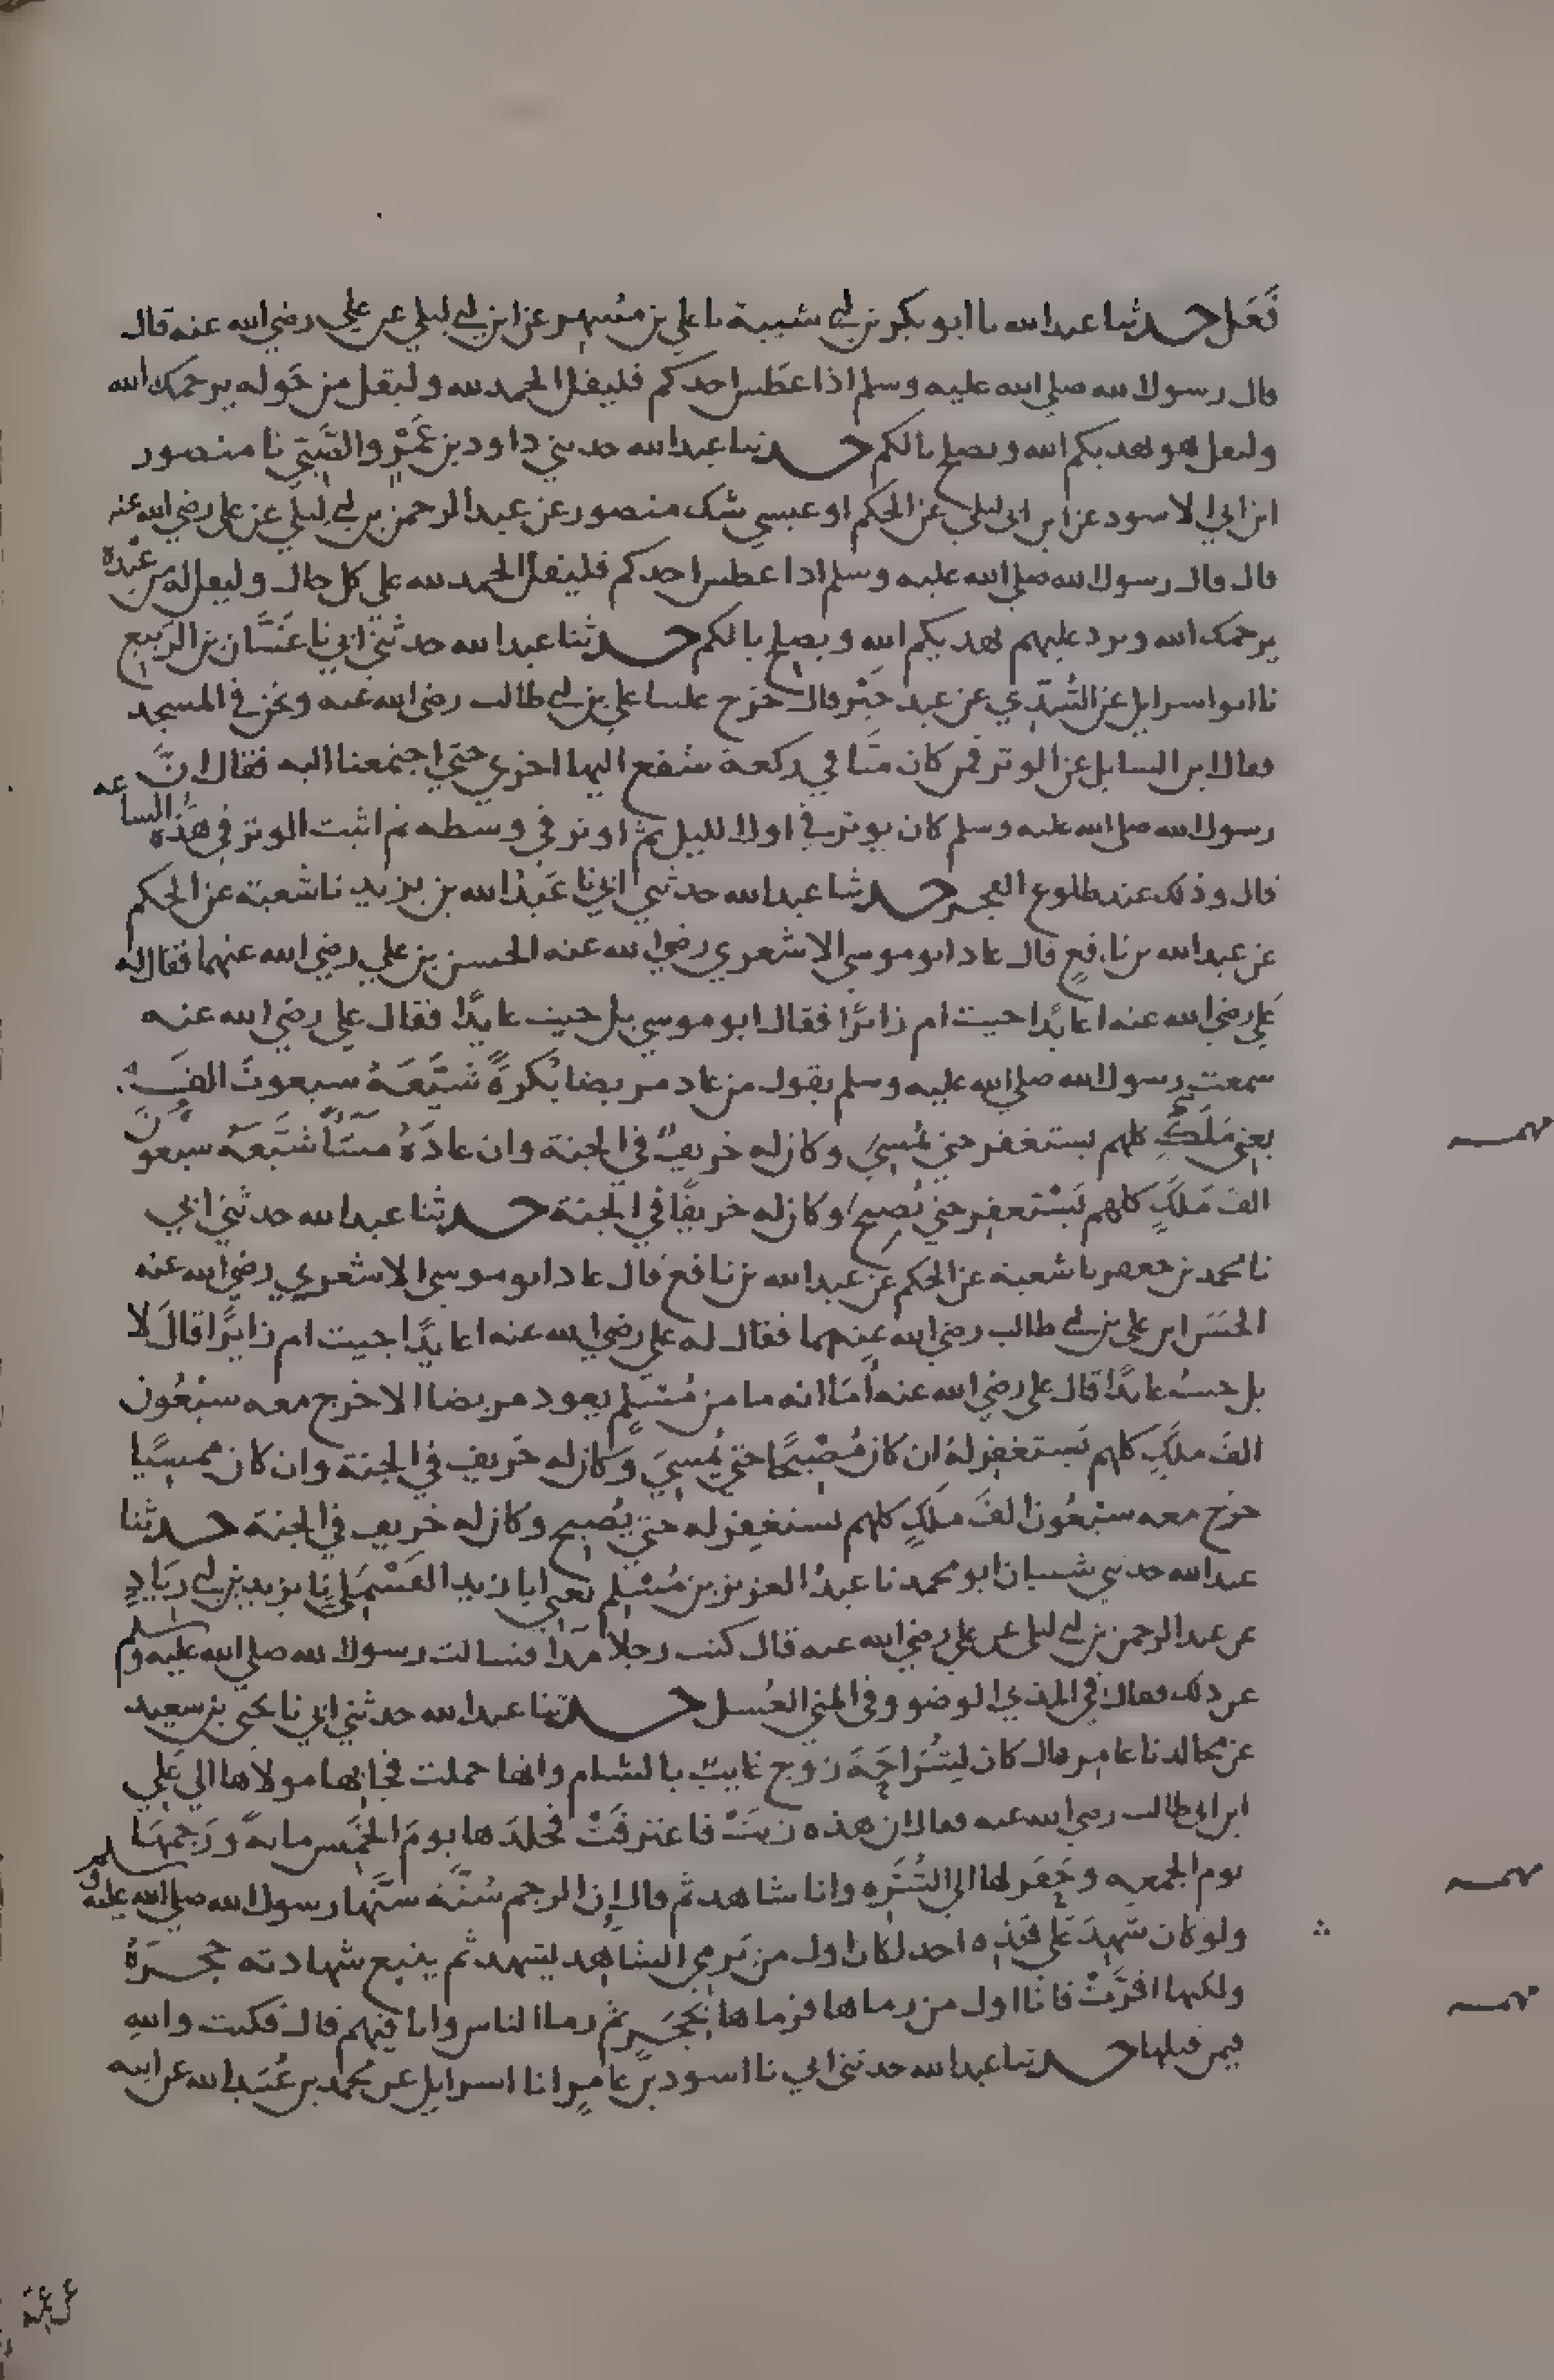 نَعَل حدثنا عبدالله نا ابو بكر بن ابي شيبة نا علي بن مسهر عن ابن ابي ليلي عن علي رضي الله عنه قال
قال رسول الله صلي الله عليه وسلم اذا عطس احدكم فليقل الحمد لله وليقل من حوله يرحمك الله
وليقل هو يهديكم الله ويصلح بالكم حدثنا عبدالله حدثني داود بن عَمْرو الضَّبِّي نا منصور
ابن ابي الاسود عن ابن ابي ليلي عن الحكم او عيسي شك منصور عن عبد الرحمن بن ابي ليلي عن علي رضي الله عنه
قال قال رسول الله صلي الله عليه وسلم اذا عطس احدكم فليقل الحمد لله علي كل حال وليقل له من عنده
يرحمك الله ويرد عليهم يهديكم الله ويصلح بالكم حدثنا عبدالله حدثني ابي نا غسَّان بن الربيع
نا ابو اسرايل عن السُّدّي عن عبد خَيْر قال خرج علينا علي بن ابي طالب رضي الله عنه ونحن في المسجد
فقال اين السايل عن الوتر فمن كان منَّا في ركعة شفع اليها اخري حتي اجتمعنا اليه فقال انَّ
رسول الله صلي الله عليه وسلم كان يوتر في اول الليل ثم اوتر في وسطه ثم اثبت الوتر في هذه الساعه
قال وذلك عند طلوع الفجر حدثنا عبدالله حدثني ابي نا عَبْدُ الله بن يزيد نا شعبة عن الحكم
عن عبدالله بن نافعٍ قال عاد ابو موسي الاشعري رضي الله عنه الحسن بن علي رضي الله عنهما فقال له
عَلي رضي الله عنه اعائدًا جيت ام زائرًا فقال ابو موسي بل جيت عايدًا فقال علي رضي الله عنه
سمعت رسول الله صلي الله عليه وسلم يقول من عاد مريضا بُكرةً شَيَّعَهُ سبعونَ الفَ
يعني مَلَكٍ كلهم يستغفر حتي يُمسيَ وكان له خريفٌ في الجنة وان عادَهُ مسَاً شَيَّعَهُ سبعونَ
الفَ مَلَكٍ كلهم يَسْتغفر حتي يُصبح وكان له خريفًا في الجنة حدثنا عبدالله حدثني ابي
نا محمد بن جعفر نا شعبة عن الحكم عن عبدالله بن نافع قال عاد ابو موسي الاشعري رضي الله عنه
الحَسَن ابن علي بن ابي طالب رضي الله عنهما فقال له علي رضي الله عنه اعايدًا جيت ام زايرًا قالَ لا
بل جيتُ عايدًا قال علي رضي الله عنه أَمَا انه ما من مُسْلِمٍ يعود مريضا الا خرج معه سبْعُون
الفَ ملَكٍ كلهم يَستغفر لهُ ان كان مُصْبِحًا حتي يُمْسيَ وكان له خَريف في الجنة وان كان ممسِيًا
خرج معه سبْعُون الفَ ملَكٍ كلهم يستغفر له حتي يُصبح وكان له خريف في الجنة حدثنا
عبدالله حدثني شيبان ابو محمد نا عبدُ العزيز بن مُسْلِم يعني ابا زيد القَسْمَلي نا يزيد بن ابي زيَادٍ
عن عبد الرحمن بن ابي ليلي عن علي رضي الله عنه قال كنت رجلا مَذَّا فسالت رسول الله صلي الله عليه وسلم
عن ذلك فقال في المذي الوضو وفي المني الغُسل حدثنا عبدالله حدثني ابي نا يحيي بن سعيد
عن مجالد نا عامر قال كان لِشُرَاحَةَ زوج غايبٌ بالشام وانها حملت فجا بها مولاها الي عَلي
ابن ابي طالب رضي الله عنه فقال ان هذه زنَتْ فاعترفَتْ فجلدَها يومَ الخميس مايةً ورَجمهَا
يوم الجمعه وحَفَر لها الي السُّرَّه وانا شاهد ثم قال إِن الرجم سُنَّةٌ سنَّها رسول الله صلي الله عليه وسلم
ولو كان شَهِدَ عَلي هَذِه احد لكان اول من يَرمي الشاهد يشهد ثم يتبع شهادته حجَرَهُ
ولكنها اقَرَّتْ فانا اول من رماها فرماها بحَجَر ثم رما الناس وانا فيهم قال فكنت والله
فيمن قتلها حدثنا عبدالله حدثني ابي نا اسود بن عامر انا اسرايل عن محمد بن عُبَيد الله عن ابيه